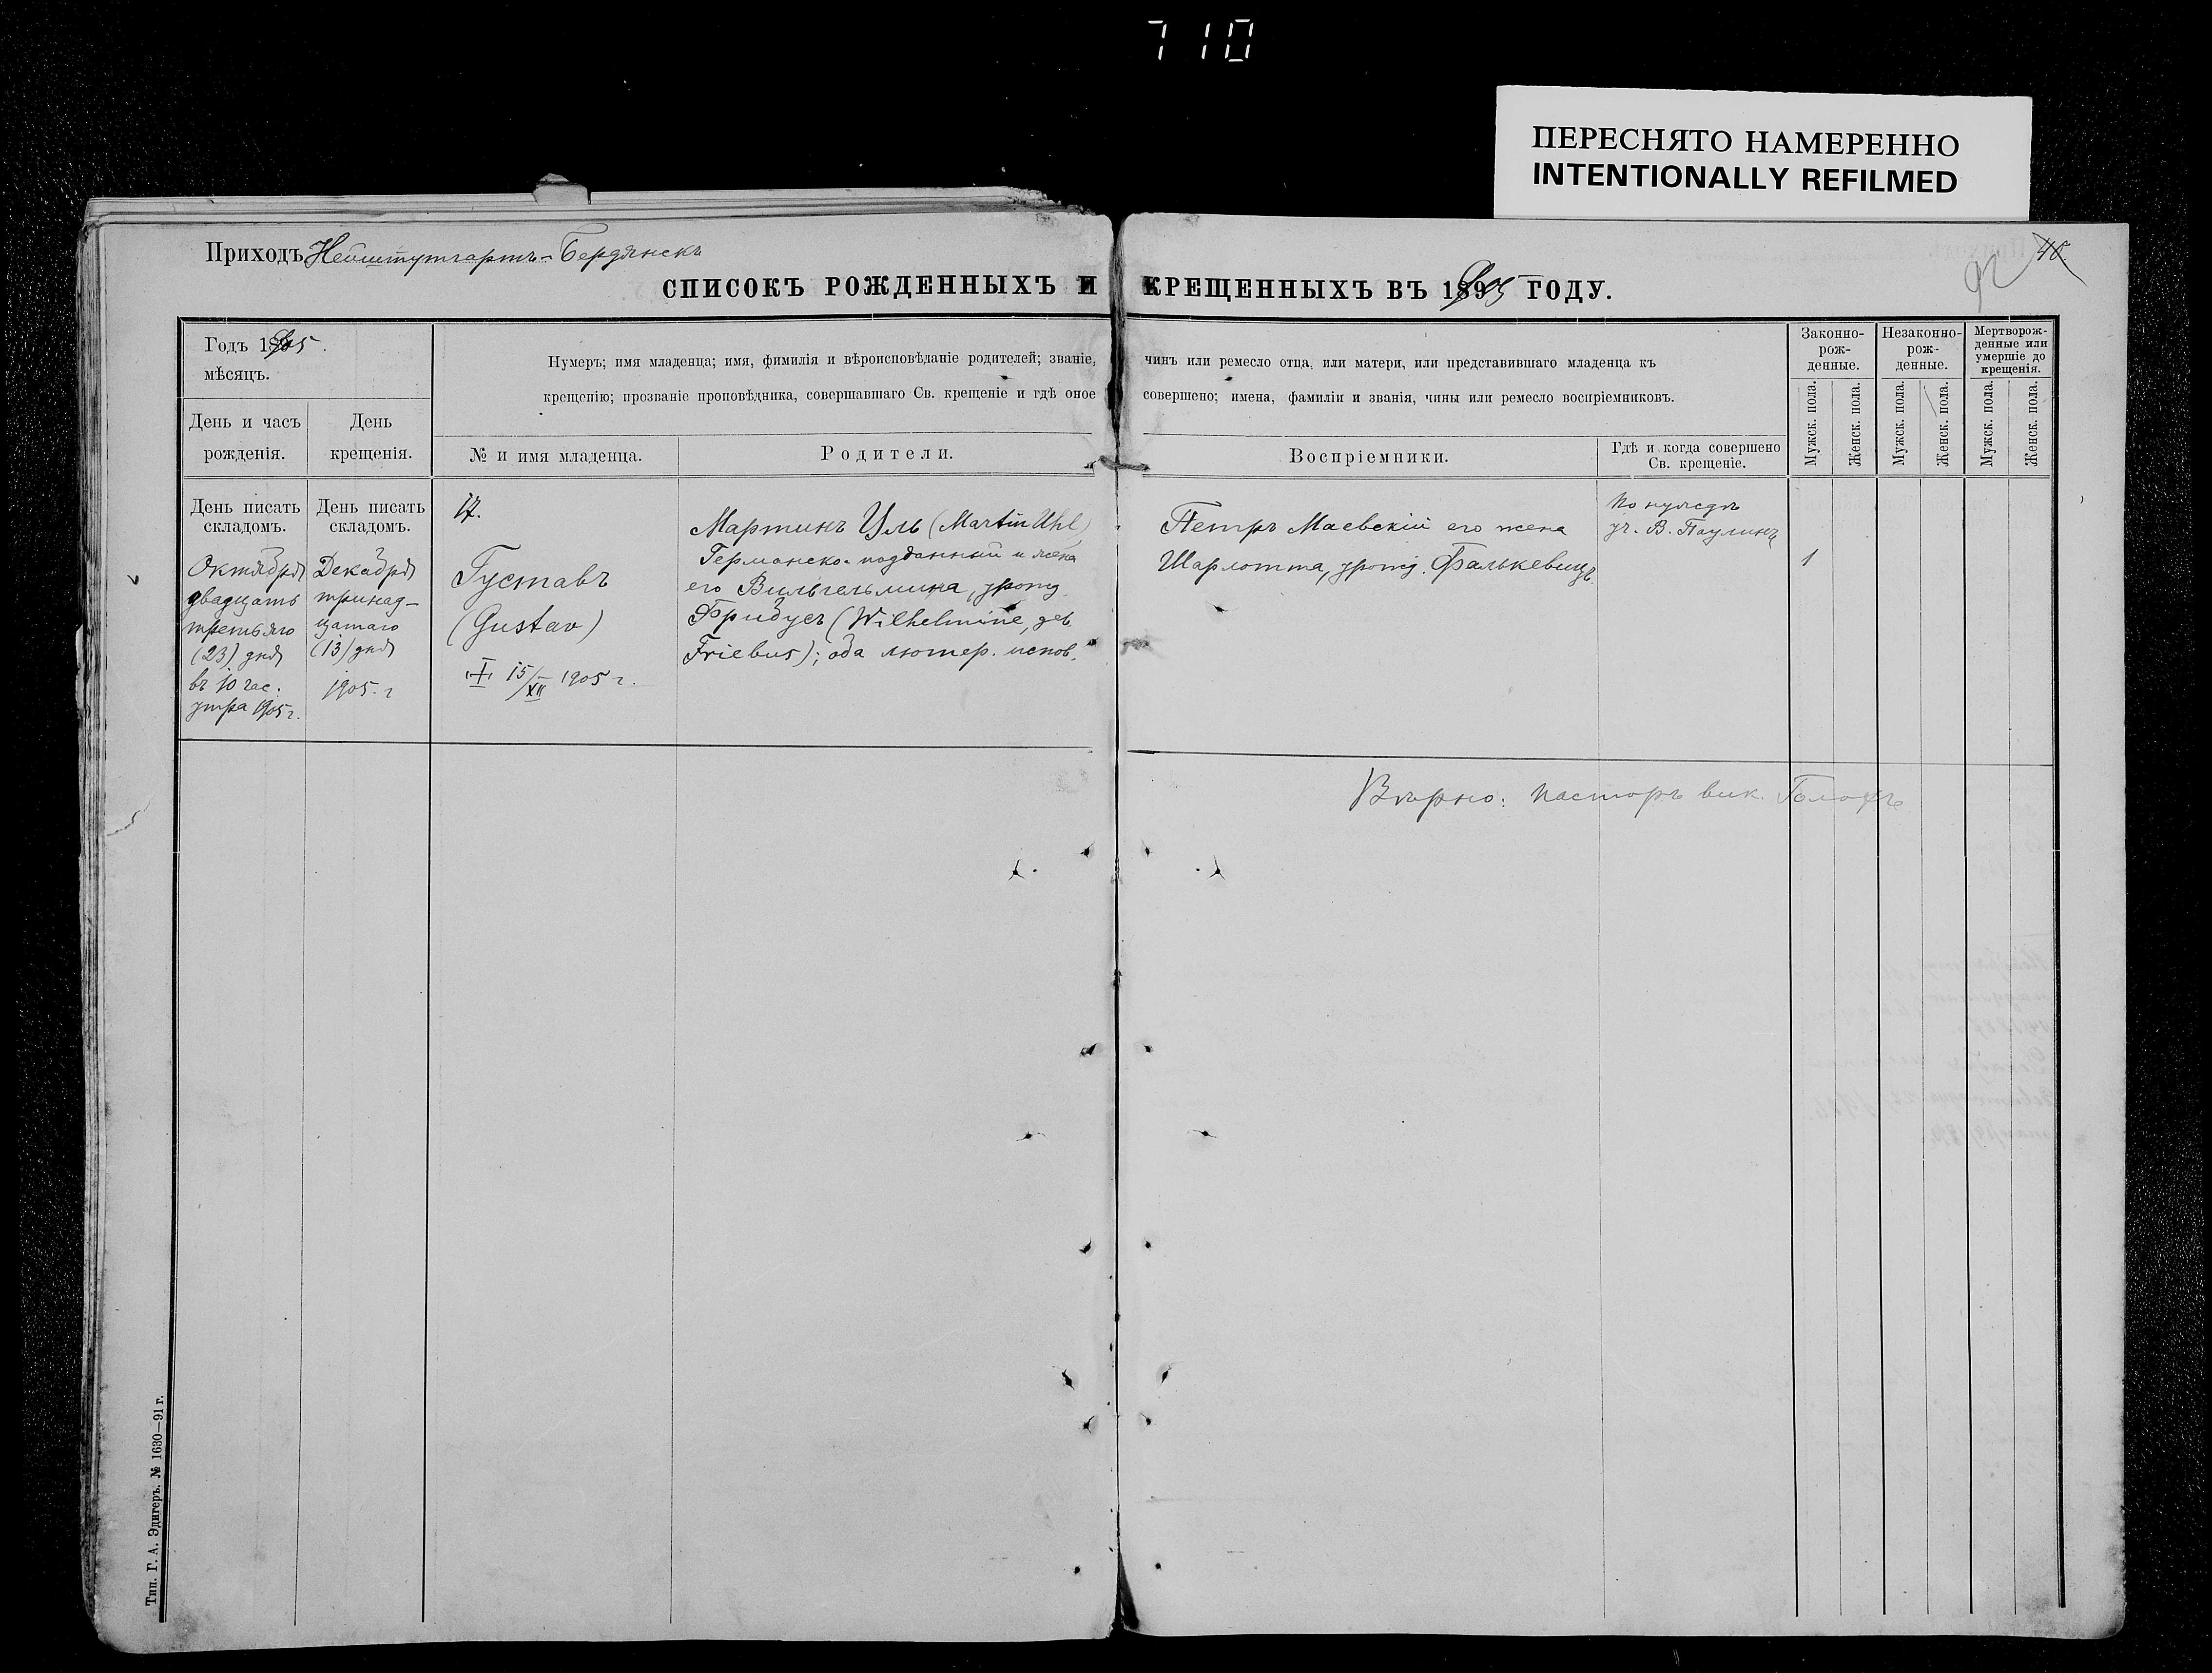 710
ПЕРЕСНЯТО НАМЕРЕННО
INTENTIONALLY REFILMED
Приходъ Нейштутгартъ-Бердянскъ
40.
92
СПИСОКЪ РОЖДЕННЫХЪ И КРЕЩЕННЫХЪ ВЪ 1905 ГОДУ.
Годъ 1905.
мѣсяцъ.
День и часъ рожденія.
День крещенія.
Нумеръ; имя младенца; имя, фимилія и вѣроисповѣданіе родителей; званіе, чинъ или ремесло отца, или матери, или представившаго младенца къ
крещенію; прозваніе проповѣдника, совершавшаго Св. крещеніе и гдѣ оное совершено; имена, фамиліи и званія, чины или ремесло воспріемниковъ.
№ и имя младенца.
Родители.
Воспріемники.
Гдѣ и когда совершено
Св. крещеніе.
Законно-
рож-
денные.
Незаконно-
рож-
денные.
Мертворож-
денные или
умершіе до
крещенія.
Мужск. пола.
Женск. пола.
Мужск. пола.
Женск. пола.
Мужск. пола.
Женск. пола.
День писать
складомъ.
Октября
двадцать
третьяго
(23) дня
въ 10 час.
утра 1905 г.
День писать
складомъ.
Декабря
тринад-
цатаго
(13) дня
1905. г
17.
Густавъ
(Gustav)
15/XII 1905 г.
Мартинъ Уль (Martin Uhl)
Германско-подданный и жена
его Вильгельмина, урожд.
Фрибусъ (Wilhelmine, geb
Friebus); оба лютер. испов.
Петръ Маевскій его жена
Шарлотта, урожд. Фалькевичъ.
По нуждѣ
уч. В. Паулинъ
1
Вѣрно: Пасторъ вик.
Тип. Г. А. Эдигеръ. № 1630—91 г.